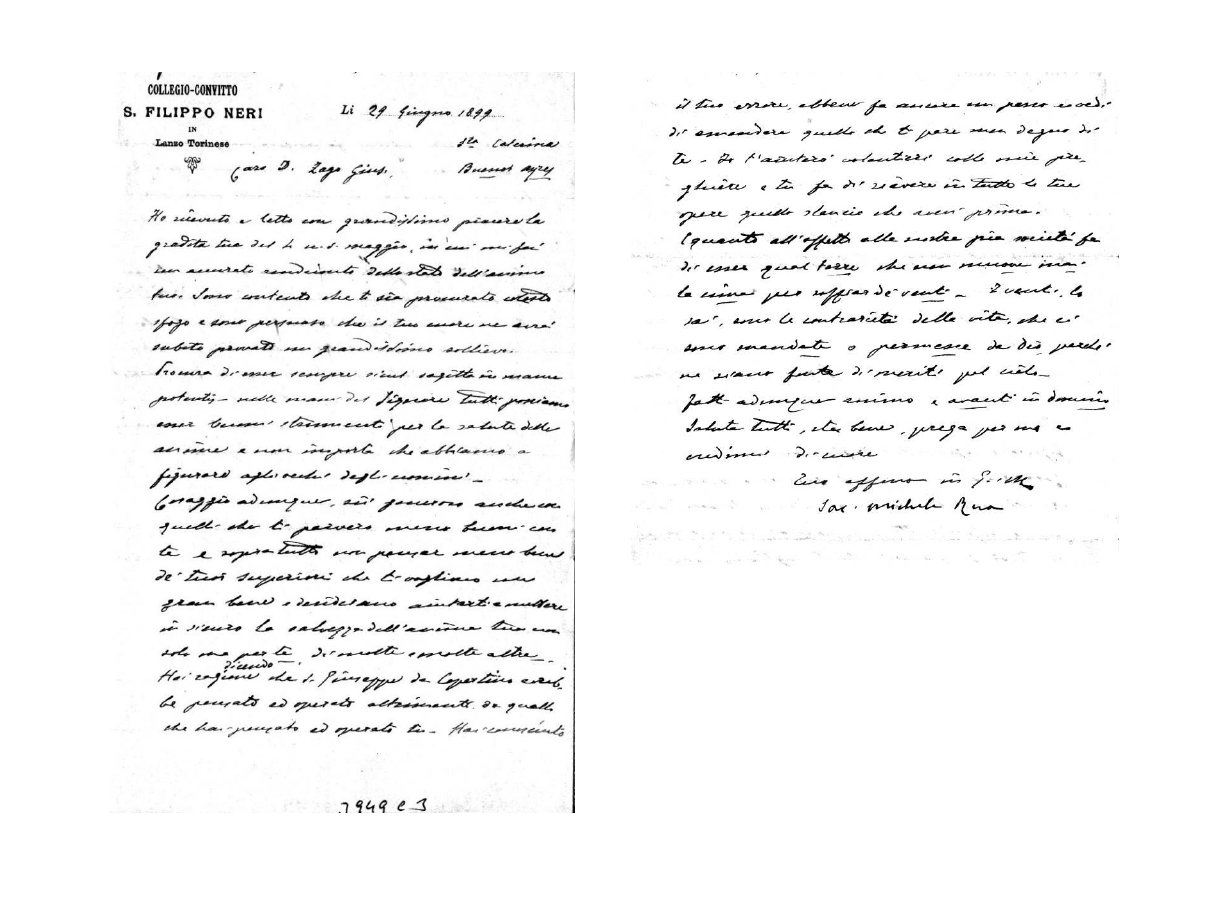 COLLEGIO-CONVITTO
S. FILIPPO NERI
IN
Lanzo Torinese
Li 29 Giugno 1899
Sta Caterina
Buenos Ayres
Caro D. Zago Gius.
Ho ricevuto e letto con grandissimo piacere la
gradita tua del 4 u. s. maggio, in cui mi fai
un accurato rendiconto dello stato dell'anima
tua. Sono contento che ti sia procurato cotesto
sfogo e sono persuaso che il tuo cuore ne avrà
subito provato un grandissimo sollievo.
Procura di esser sempre sicut sagitta in manu
potentis - nelle mani del Signore tutti possiamo
esser buoni strumenti per la salute delle
anime e non importa che abbiamo a
figurare agli occhi degli uomini -
Coraggio adunque, sii generoso anche con
quelli che ti parvero meno buoni con
te e sopra tutto non pensar meno bene
de' tuoi superiori che ti vogliono un
gran bene e desiderano aiutarti a mettere
in sicuro la salvezza dell'anima tua non
solo ma per te, di molte e molte altre.
dicendo
Hai ragione che S. Giuseppe da Copertino avreb-
be pensato ed operato altrimenti da quello
che hai pensato ed operato tu - Hai conosciuto
il tuo errore, ebbene fa ancora un passo e vedi
di emendare quello che ti pare men degno di
te - Io t'aiuterò volentieri colle mie pre-
ghiere e tu fa di riavere in tutto le tue
opere quello slancio che avevi prima.
Quanto all'affetto alla nostra pia società fa
di esser qual torre che non muove mai
la cima per soffiar de' venti - I venti, lo
sai, sono le contrarietà della vita, che ci
sono mandate o permesse da Dio perchè
ne siano fonte di meriti pel cielo -
Fatti adunque animo e avanti in Domino
Saluta tutti, sta bene, prega per me e
credimi di cuore
Tuo affmo in G. e M.
Sac. Michele Rua
2949 C 3